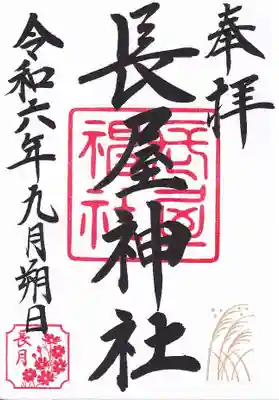 奉拝
長屋神社
長屋神社
令和六年九月朔日
長月